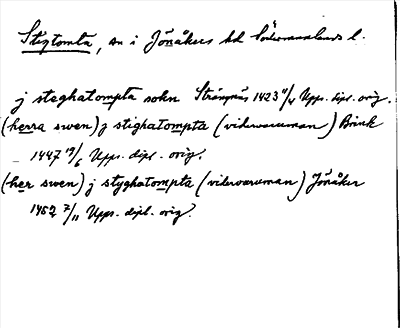 Stigtomta, sn i Jönåkers hd Södermanlands l.
j steghatompta sokn Strängnäs 1423 11/4 Upps. dipl. orig.
(herra swen) j stighatompta (viderwaruman) Brink
1447 19/6 Upps. dipl. orig.
(her swen) j styghatompta (viderwaruman) Jönåker
1452 7/11 Upps. dipl. orig.